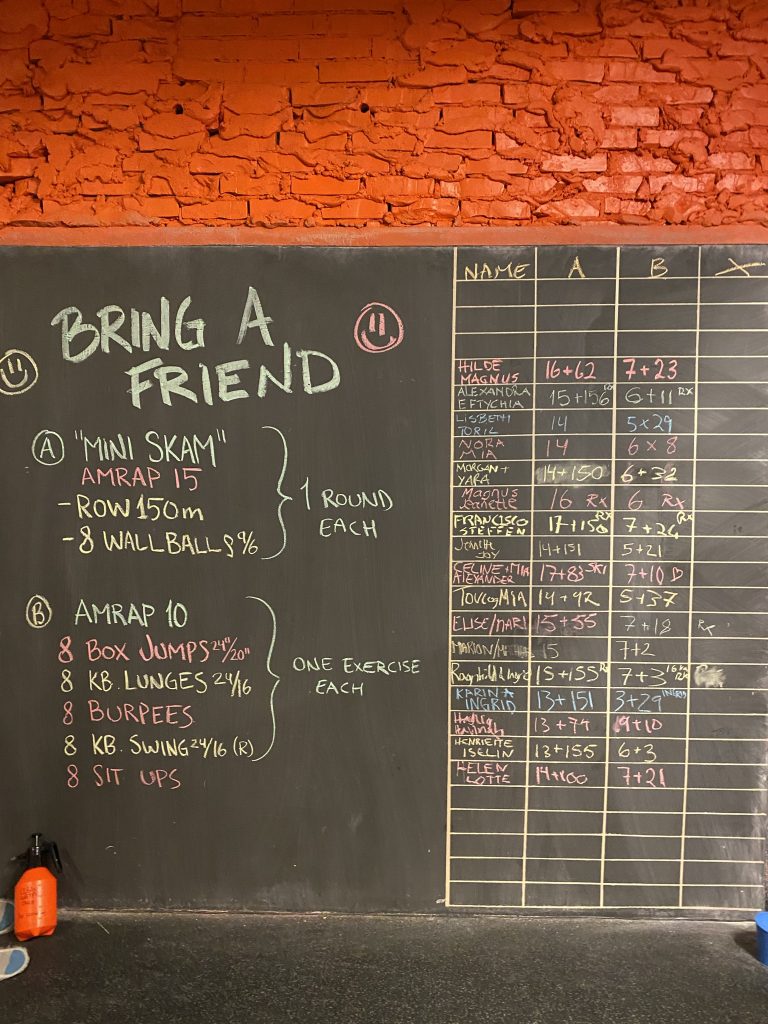 BRING A
FRIEND
A "MINI SKAM"
AMRAP 15
- ROW 150m
- 8 WALLBALL 9/6
1 ROUND
EACH
B AMRAP 10
8 BOX JUMPS 24"/20"
8 KB. LUNGES 24/16
8 BURPEES
8 KB. SWING 24/16 (R)
8 SIT UPS
ONE EXERCISE
EACH
NAME A B X
HILDE
MAGNUS 16+62 7+23
ALEXANDRA
EFTYCHIA 15+156 Rx 6+11 Rx
LISBETH
TORIL 14 5x29
NORA
MIA 14 6x8
MORGAN +
YARA 14+150 6+32
Magnus
Jeanette 16 Rx 6 Rx
FRANCISCO
STEFFEN 17+150 Rx 7+24 Rx
Jeanette
Joy 14+151 5+21
CELINE+MIA
ALEXANDER 17+83 SKI 7+10
TOVE og MIA 14+92 5+37
ELISE/MARI 15+55 7+18 Rx
MARION/ 15 7+2
Ragnhild & Ingrid 15+155 7+3
KARINA
INGRID 13+151 3+29 INGRID
Hannah 13+74 +10
HENRIETTE
ISELIN 13+155 6+3
HELEN
LOTTE 14+100 7+21